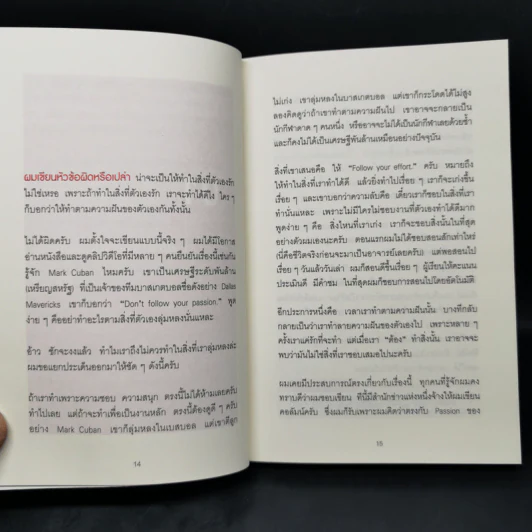 ผมเขียนหัวข้อผิดหรือเปล่า น่าจะเป็นให้ทำในสิ่งที่ตัวเองรัก
ไม่ใช่เหรอ เพราะถ้าทำในสิ่งที่ตัวเองรัก เราจะทำได้ดีไง ใคร ๆ
ก็บอกว่าให้ทำตามความฝันของตัวเองกันทั้งนั้น
ไม่ได้ผิดครับ ผมตั้งใจจะเขียนแบบนี้จริง ๆ ผมได้มีโอกาส
อ่านหนังสือและดูคลิปวิดีโอที่มีหลาย ๆ คนยืนยันเรื่องนี้เช่นกัน
รู้จัก Mark Cuban ไหมครับ เขาเป็นเศรษฐีระดับพันล้าน
(เหรียญสหรัฐ) ที่เป็นเจ้าของทีมบาสเกตบอลชื่อดังอย่าง Dallas
Mavericks เขาก็บอกว่า "Don't follow your passion." พูด
ง่าย ๆ คืออย่าทำอะไรตามสิ่งที่ตัวเองลุ่มหลงนั่นแหละ
อ้าว ชักจะงงแล้ว ทำไมเราถึงไม่ควรทำในสิ่งที่เราลุ่มหลงล่ะ
ผมขอแยกประเด็นออกมาให้ชัด ๆ ดังนี้ครับ
ถ้าเราทำเพราะความชอบ ความสนุก ตรงนี้ไม่ได้ห้ามเลยครับ
ทำไปเลย แต่ถ้าจะทำเพื่อเป็นงานหลัก ตรงนี้ต้องดูดี ๆ ครับ
อย่าง Mark Cuban เขาก็ลุ่มหลงในเบสบอล แต่เขาตีลูก
14
ไม่เก่ง เขาลุ่มหลงในบาสเกตบอล แต่เขาก็กระโดดได้ไม่สูง
ลองคิดดูว่าถ้าเขาทำตามความฝันไป เขาอาจจะกลายเป็น
นักกีฬาดาด ๆ คนหนึ่ง หรืออาจจะไม่ได้เป็นนักกีฬาเลยด้วยซ้ำ
และก็คงไม่ได้เป็นเศรษฐีพันล้านเหมือนอย่างปัจจุบัน
สิ่งที่เขาเสนอคือ ให้ "Follow your effort." ครับ หมายถึง
ให้ทำในสิ่งที่เราทำได้ดี แล้วยิ่งทำไปเรื่อย ๆ เราก็จะเก่งขึ้น
เรื่อย ๆ และเขาบอกว่าความลับคือ เดี๋ยวเราก็ชอบในสิ่งที่เรา
ทำนั่นแหละ เพราะไม่มีใครไม่ชอบงานที่ตัวเองทำได้ดีมาก
พูดง่าย ๆ คือ สิ่งไหนที่เราเก่ง เราก็จะชอบสิ่งนั้นในที่สุด
อย่างตัวผมเองนะครับ ตอนแรกผมไม่ได้ชอบสอนสักเท่าไหร่
(นี่คือชีวิตจริงก่อนจะมาเป็นอาจารย์เลยครับ) แต่พอสอนไป
เรื่อย ๆ วันแล้ววันเล่า ผมก็สอนดีขึ้นเรื่อย ๆ ผู้เรียนให้คะแนน
ประเมินดี มีคำชม ในที่สุดผมก็ชอบการสอนไปโดยอัตโนมัติ
อีกประการหนึ่งคือ เวลาเราทำตามความฝันนั้น บางทีกลับ
กลายเป็นว่าเราทำลายความฝันของตัวเองไป เพราะหลาย ๆ
ครั้งเราแค่รักที่จะทำ แต่เมื่อเรา "ต้อง" ทำสิ่งนั้น เราอาจจะ
พบว่ามันไม่ใช่สิ่งที่เราชอบเสมอไปนะครับ
ผมเคยมีประสบการณ์ตรงเกี่ยวกับเรื่องนี้ ทุกคนที่รู้จักผมคง
ทราบดีว่าผมชอบเขียน ทีนี้มีสำนักข่าวแห่งหนึ่งจ้างให้ผมเขียน
คอลัมน์ครับ ซึ่งผมก็รับเพราะผมคิดว่าตรงกับ Passion ของ
15